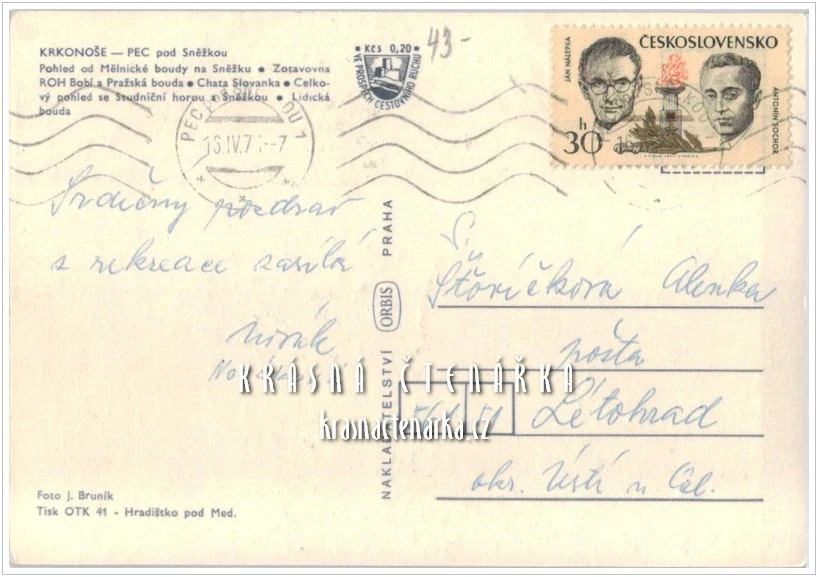 KRKONOŠE — PEC pod Sněžkou
Pohled od Mělnické boudy na Sněžku • Zotavovna
ROH Bobí a Pražská bouda • Chata Slovanka • Celko-
vý pohled se Studniční horou a Sněžkou • Lidická
bouda
Kčs 0,20
VE PROSPĚCH CESTOVNÍHO RUCHU
43-
ČESKOSLOVENSKO
JÁN NÁLEPKA
ANTONÍN SOCHOR
30 h
PEC POD SNĚŽKOU 1
16.IV.7 -7
Srdečný pozdrav
s rekreace zasílá
Novák
NAKLADATELSTVÍ ORBIS PRAHA
S.
Šťovíčková Alenka
pošta
561 51 Létohrad
okr. Ústí n. Orl.
KRÁSNÁ ČTENÁŘKA
krasnactenarka.cz
Foto J. Bruník
Tisk OTK 41 - Hradištko pod Med.